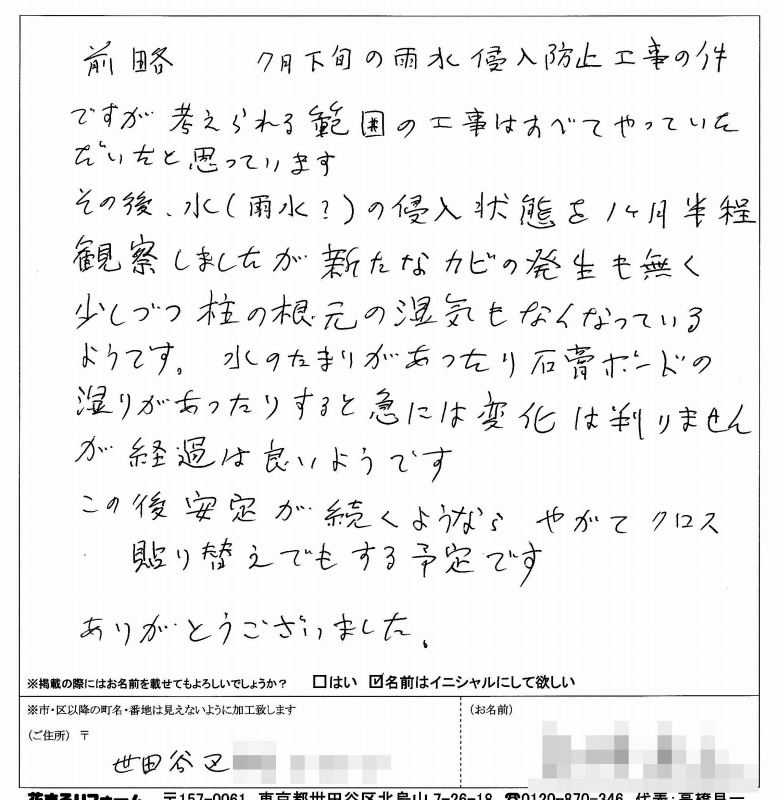 前略　7月下旬の雨水侵入防止工事の件
ですが考えられる範囲の工事はすべてやっていた
だいたと思っています
その後、水(雨水?)の侵入状態を1ヶ月半程
観察しましたが新たなカビの発生も無く
少しづつ柱の根元の湿気もなくなっている
ようです。水のたまりがあったり石膏ボードの
湿りがあったりすると急には変化は判りません
が経過は良いようです
この後安定が続くようなら やがてクロス
貼り替えでもする予定です
ありがとうございました。
※掲載の際にはお名前を載せてもよろしいでしょうか? □はい ☑名前はイニシャルにして欲しい
※市・区以降の町名・番地は見えないように加工致します
(お名前)
(ご住所) 〒
世田谷区
花まるリフォーム 〒157-0061 東京都世田谷区北烏山7-26-18 ☎0120-870-346 代表:高橋